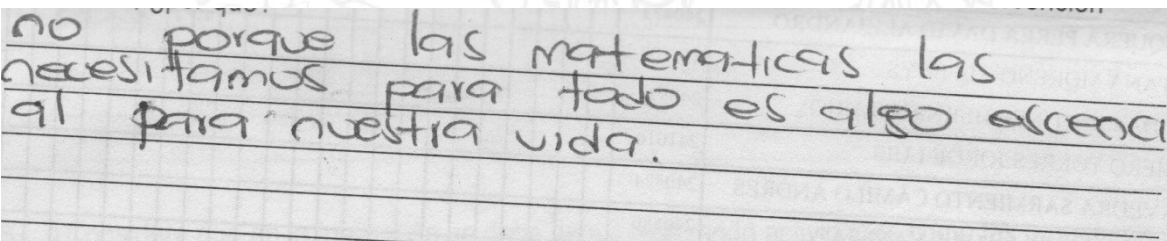 no porque las matematicas las
necesitamos para todo es algo escenci
al para nuestra vida.